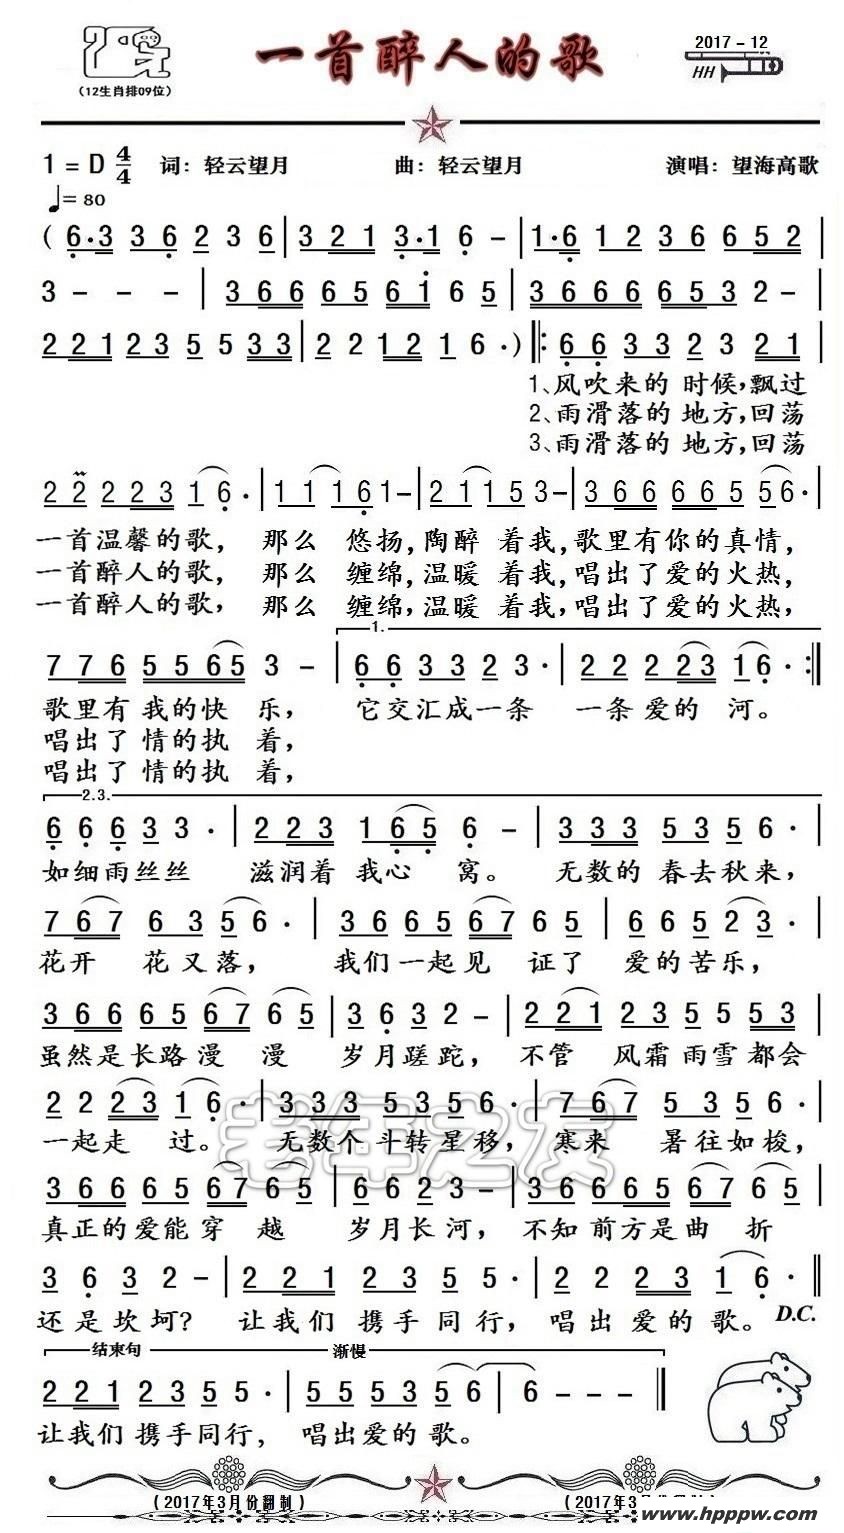 一首醉人的歌
2017-12
HH
(12生肖排09位)
1=D 4/4 词:轻云望月 曲:轻云望月 演唱:望海高歌
♩=80
( 6·3 3 6 2 3 6 | 3 2 1 3·1 6 - | 1·6 1 2 3 6 6 5 2 |
3 - - | 3 6 6 6 5 6 1 6 5 | 3 6 6 6 6 5 3 2 - |
2 2 1 2 3 5 5 3 3 | 2 2 1 2 1 6 · ) ‖: 6 6 3 3 2 3 2 1 |
1、风吹来的 时候,飘过
2、雨滑落的 地方,回荡
3、雨滑落的 地方,回荡
2 2 2 2 3 1 6 · | 1 1 1 1 6 1 - | 2 1 1 5 3 - | 3 6 6 6 6 5 5 6 · |
一首温馨的歌, 那么 悠扬,陶醉 着我,歌里有你的真情,
一首醉人的歌, 那么 缠绵,温暖 着我,唱出了爱的火热,
一首醉人的歌, 那么 缠绵,温暖 着我,唱出了爱的火热,
1.
7 7 6 5 5 6 5 3 - | 6 6 3 3 2 3 · | 2 2 2 2 3 1 6 · :‖
歌里有 我的快 乐, 它交汇成一条 一条 爱的 河。
唱出了 情的执 着,
唱出了 情的执 着,
2.3.
6 6 6 3 3 · | 2 2 3 1 6 5 6 - | 3 3 3 5 3 5 6 · |
如细雨丝丝 滋润着 我心 窝。 无数的 春去秋来,
7 6 7 6 3 5 6 · | 3 6 6 5 6 7 6 5 | 6 6 5 2 3 · |
花开 花又落, 我们一起见 证了 爱的苦乐,
3 6 6 6 6 5 6 7 6 5 | 3 6 3 2 - | 2 2 1 2 3 5 5 5 3 |
虽然是长路漫 漫 岁月蹉跎, 不管 风霜雨雪都会
2 2 2 3 1 6 · | 3 3 3 5 3 5 6 · | 7 6 7 5 3 5 6 · |
一起走 过。 无数个 斗转星移, 寒来 暑往如梭,
3 6 6 6 6 5 6 7 6 5 | 6 6 2 3 - | 3 6 6 6 5 6 7 6 5 |
真正的爱能穿 越 岁月长河, 不知前方是曲 折
3 6 3 2 - | 2 2 1 2 3 5 5 · | 2 2 2 3 1 6 · ‖
还是坎坷? 让我们 携手同行, 唱出 爱的歌。 D.C.
结束句 渐慢
2 2 1 2 3 5 5 · | 5 5 5 3 5 6 | 6 - - - ‖
让我们 携手同行, 唱出爱的 歌。
老年之友
(2017年3月份翻制) (2017年3
www.hpppw.com